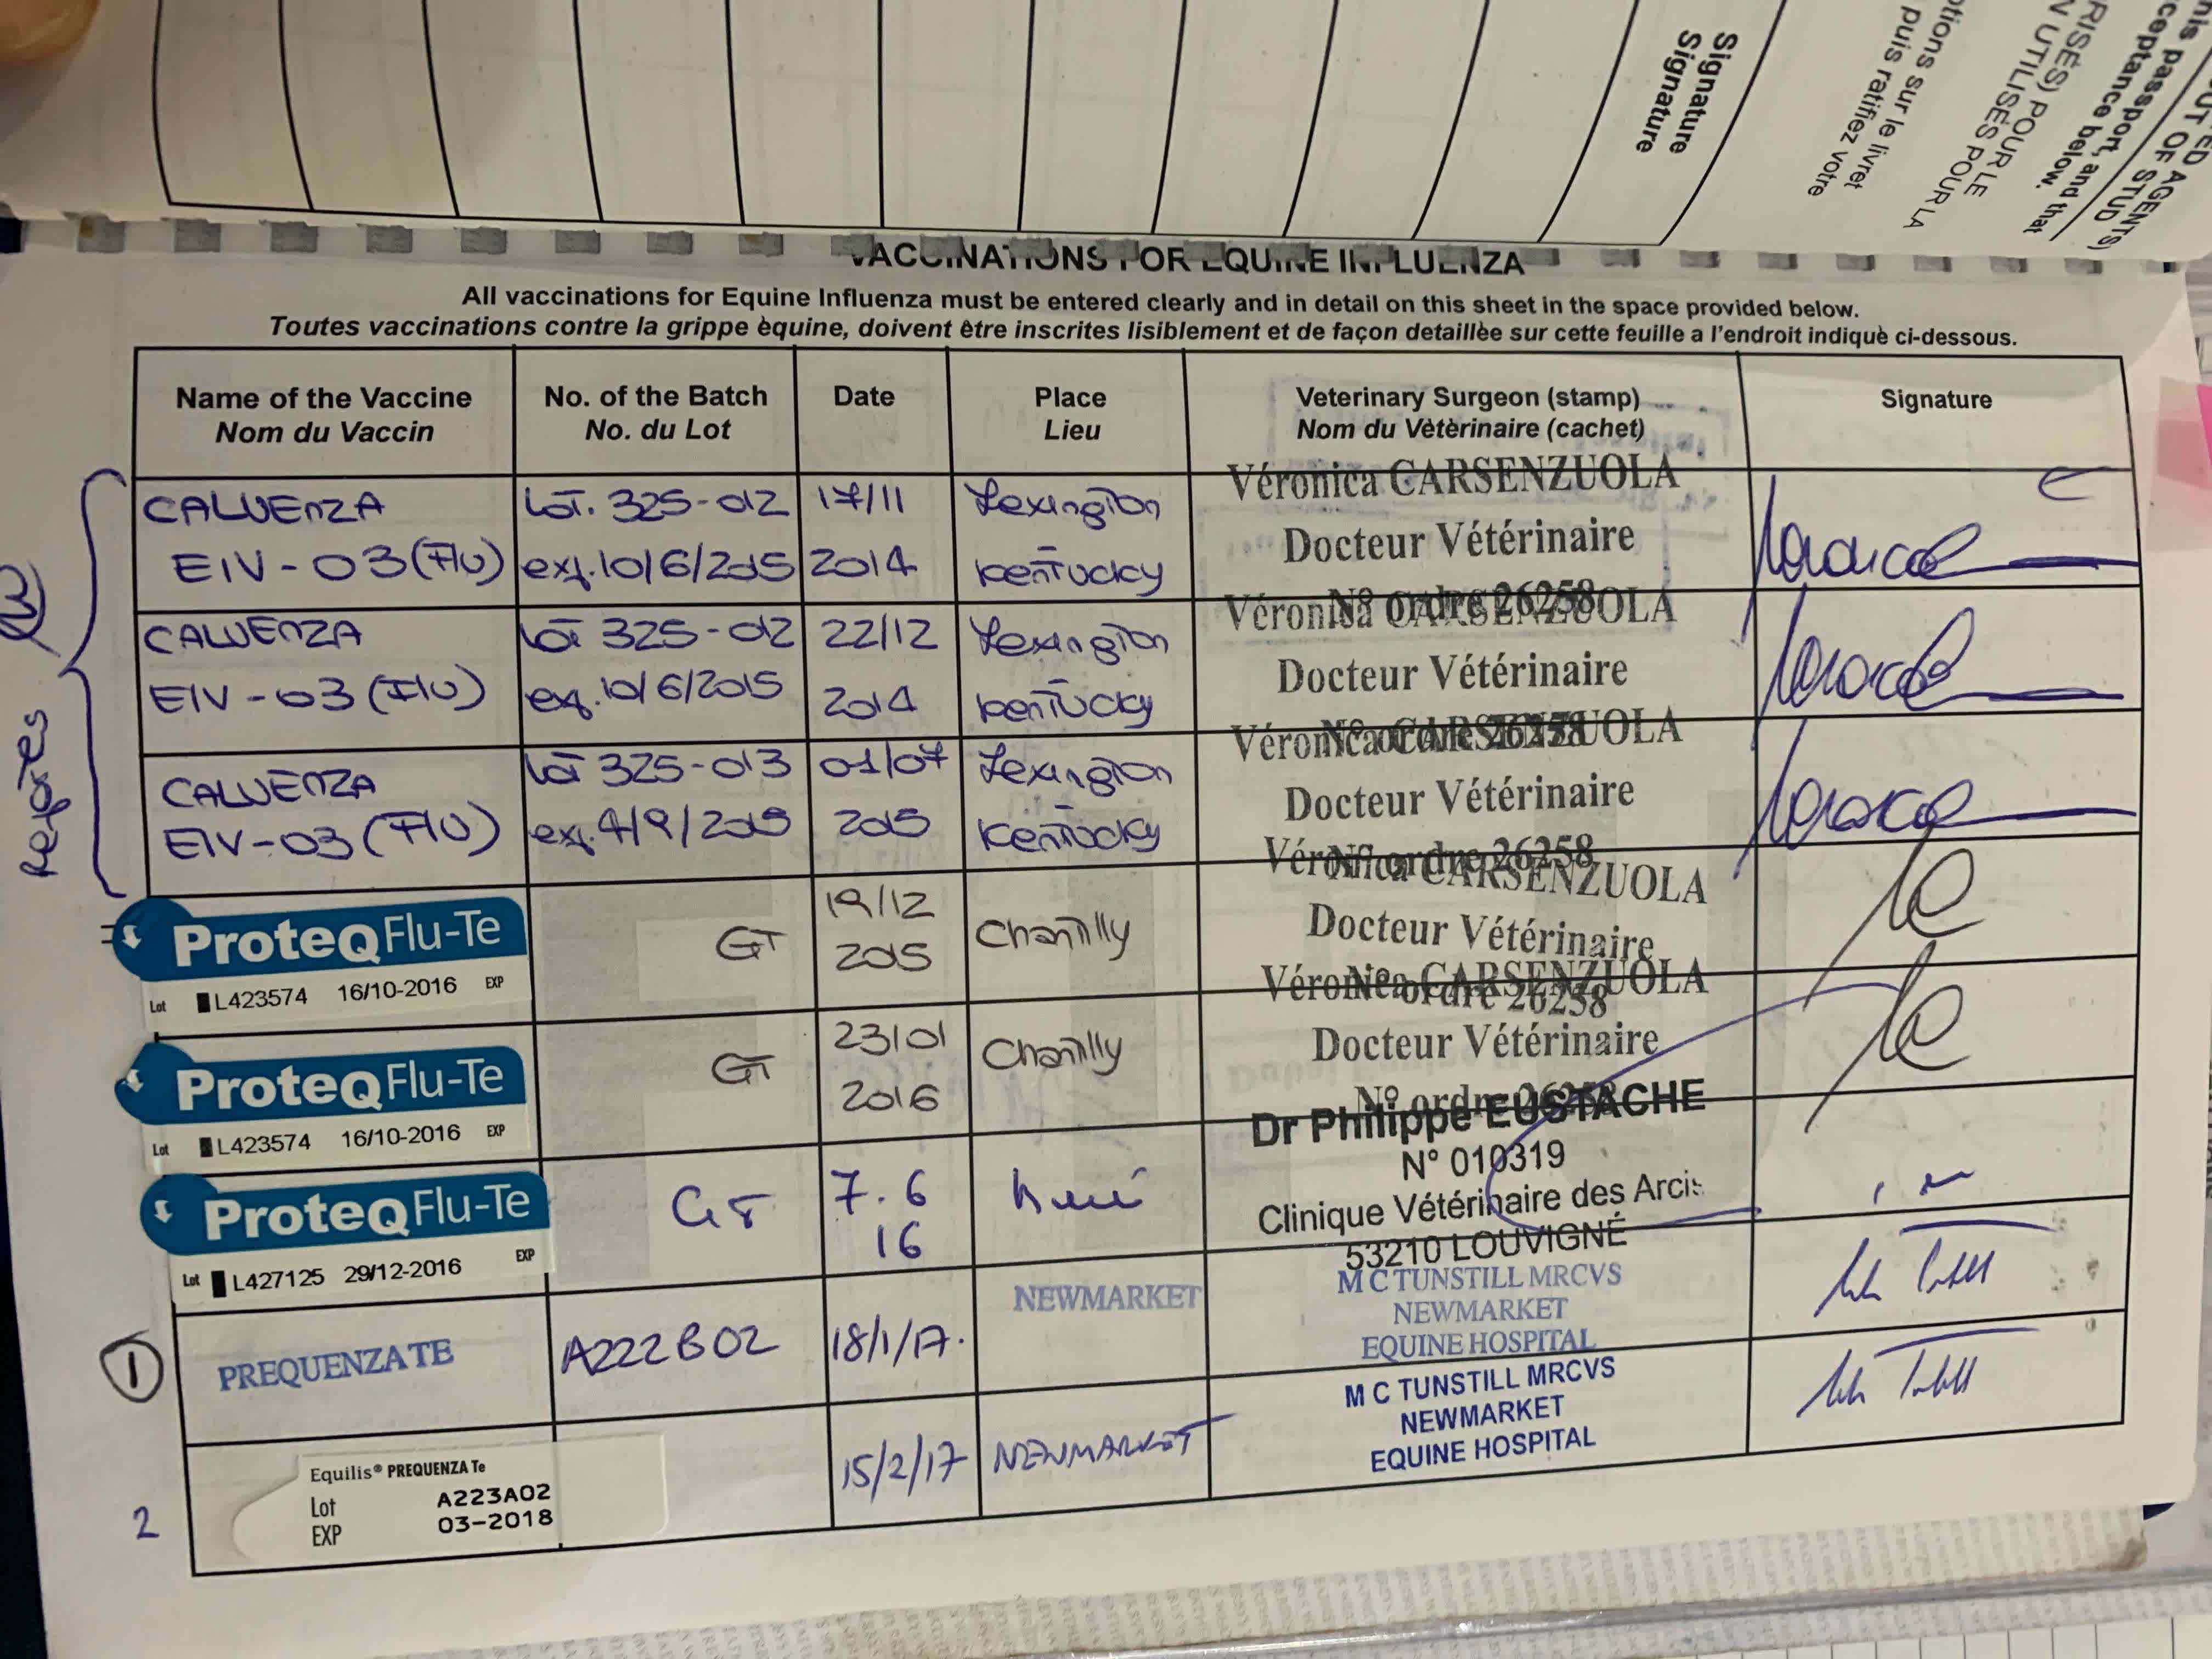 Signature
Signature
tions sur le livret
puis ratifiez votre
RISÉS) POUR LE
N UTILISÉS POUR LA
UT OF STUD
ED AGENTS)
his passport, and that
cceptance below.
VACCINATIONS FOR EQUINE INFLUENZA
All vaccinations for Equine Influenza must be entered clearly and in detail on this sheet in the space provided below.
Toutes vaccinations contre la grippe èquine, doivent être inscrites lisiblement et de façon detaillèe sur cette feuille a l'endroit indiquè ci-dessous.
Name of the Vaccine No. of the Batch Date Place Veterinary Surgeon (stamp) Signature
Nom du Vaccin No. du Lot Lieu Nom du Vètèrinaire (cachet)
CALVENZA Lot. 325-012 17/11 Lexington Véronica CARSENZUOLA
EIV-03 (Flu) exp. 10/6/2015 2014 Kentucky Docteur Vétérinaire
N° ordre 26258
CALVENZA Lot 325-012 22/12 Lexington Véronica CARSENZUOLA
EIV-03 (Flu) exp. 10/6/2015 2014 Kentucky Docteur Vétérinaire
N° ordre 26258
CALVENZA Lot 325-013 01/07 Lexington Véronica CARSENZUOLA
EIV-03 (Flu) exp. 4/9/2015 2015 Kentucky Docteur Vétérinaire
N° ordre 26258
ProteqFlu-Te GT 19/12 2015 Chantilly Véronica CARSENZUOLA
Docteur Vétérinaire
Lot L423574 16/10-2016 EXP N° ordre 26258
ProteqFlu-Te GT 23/01 2016 Chantilly Véronica CARSENZUOLA
Docteur Vétérinaire
Lot L423574 16/10-2016 EXP N° ordre 26258
ProteqFlu-Te GT 7.6 16 Dr Philippe EUSTACHE
N° 010319
Clinique Vétérinaire des Arcis
Lot L427125 29/12-2016 EXP 53210 LOUVIGNÉ
1 PREQUENZA TE A222B02 18/1/17. NEWMARKET M C TUNSTILL MRCVS
NEWMARKET
EQUINE HOSPITAL
2 Equilis® PREQUENZA Te 15/2/17 NEWMARKET M C TUNSTILL MRCVS
Lot A223A02 NEWMARKET
EXP 03-2018 EQUINE HOSPITAL